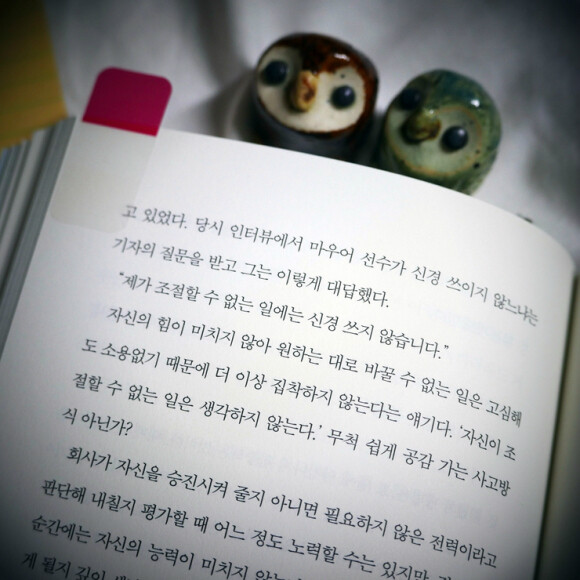 고 있었다. 당시 인터뷰에서 마우어 선수가 신경 쓰이지 않느냐는
기자의 질문을 받고 그는 이렇게 대답했다.
“제가 조절할 수 없는 일에는 신경 쓰지 않습니다.”
자신의 힘이 미치지 않아 원하는 대로 바꿀 수 없는 일은 고심해
도 소용없기 때문에 더 이상 집착하지 않는다는 얘기다. ‘자신이 조
절할 수 없는 일은 생각하지 않는다.’ 무척 쉽게 공감 가는 사고방
식 아닌가?
회사가 자신을 승진시켜 줄지 아니면 필요하지 않은 전력이라고
판단해 내칠지 평가할 때 어느 정도 노력할 수는 있지만
순간에는 자신의 능력이 미치지
게 될지